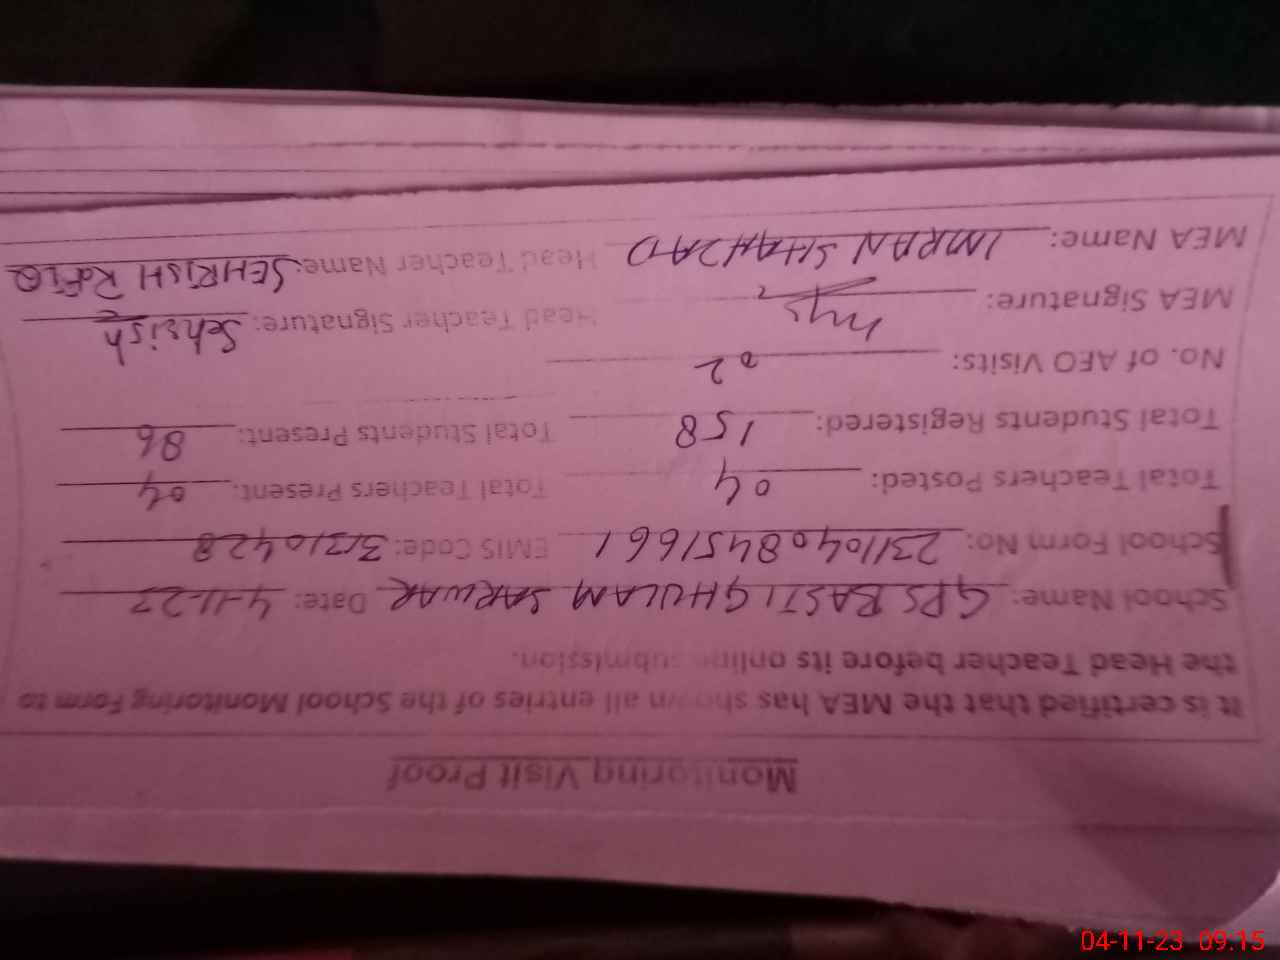 Monitoring Visit Proof
It is certified that the MEA has shown all entries of the School Monitoring Form to
the Head Teacher before its online submission.
School Name: GPS BASTI GHULAM SARWAR Date: 4-11-23
School Form No: 23110408451661 EMIS Code: 31310428
Total Teachers Posted: 04 Total Teachers Present: 04
Total Students Registered: 158 Total Students Present: 86
No. of AEO Visits: 02
MEA Signature: Head Teacher Signature: Sehrish
MEA Name: IMRAN SHAHZAD Head Teacher Name: SEHRISH RAFIQ
04-11-23 09:15